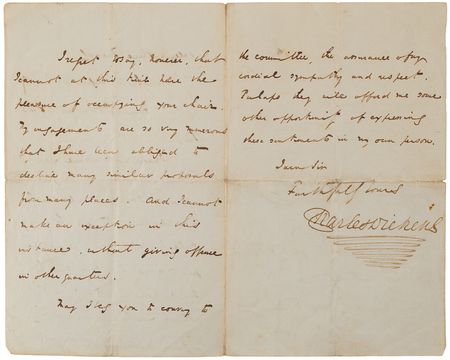 I regret to say, however, that
I cannot at this time have the
pleasure of occupying your chair.
My engagements are so very numerous
that I have been obliged to
decline many similar proposals
from many places. And I cannot
make an exception in this
instance, without giving offence
in other quarters.
May I beg you to convey to
the committee, the assurance of my
cordial sympathy and respect.
Perhaps they will afford me some
other opportunity of expressing
these sentiments in my own person.
I am Sir
Faithfully Yours
Charles Dickens